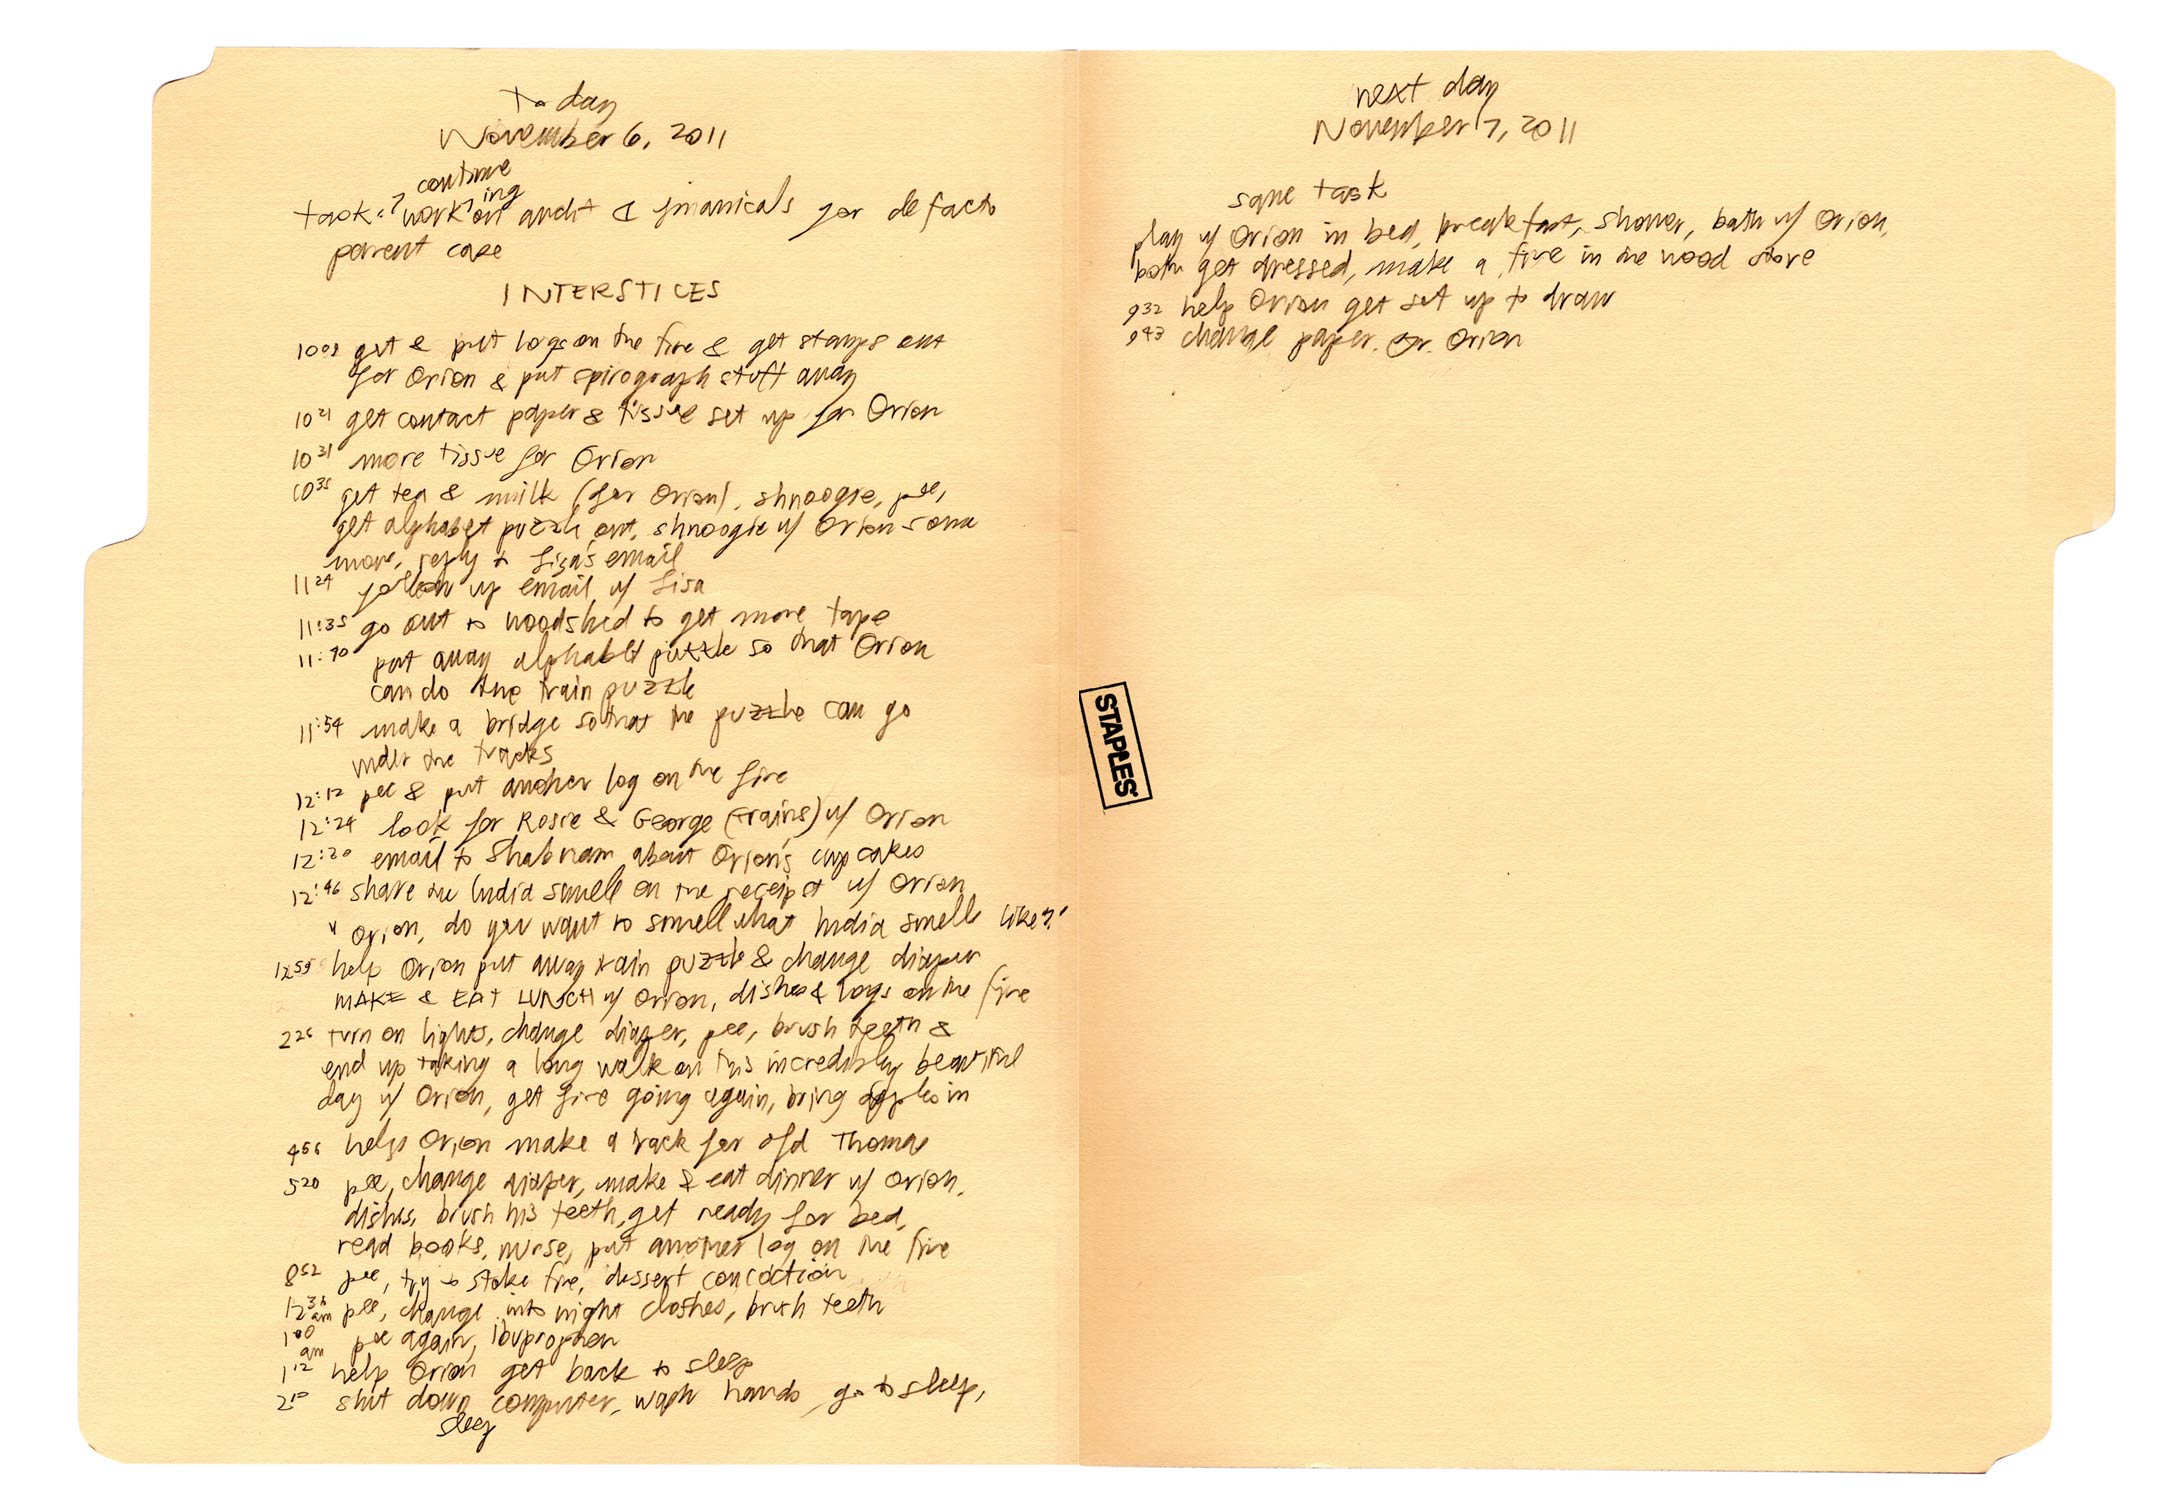 today
November 6, 2011
continue
ing
task: work on audit & financials for defacto
parent case
INTERSTICES
10 09 get & put logs on the fire & get stamps out
for Orion & put spirograph stuff away
10 21 get contact paper & tissue set up for Orion
10 31 more tissue for Orion
10 35 get tea & milk (for Orion), shnoogie, pee,
get alphabet puzzle out, shnoogie w/ Orion some
more, reply to Lisa's email
11 24 follow up email w/ Lisa
11:35 go out to woodshed to get more tape
11:40 put away alphabet puzzle so that Orion
can do the train puzzle
11:54 make a bridge so that the puzzle can go
under the tracks
12:12 pee & put another log on the fire
12:24 look for Rosie & George (trains) w/ Orion
12:20 email to Shabnam about Orion's cupcakes
12:46 share the India smell on the receipt w/ Orion
"Orion, do you want to smell what India smells like?"
12 55 help Orion put away train puzzle & change diaper
MAKE & EAT LUNCH w/ Orion, dishes & logs on the fire
2 25 turn on lights, change diaper, pee, brush teeth &
end up taking a long walk on this incredibly beautiful
day w/ Orion, get fire going again, bring apples in
4 56 help Orion make a track for old Thomas
5 20 pee, change diaper, make & eat dinner w/ Orion,
dishes, brush his teeth, get ready for bed,
read books, nurse, put another log on the fire
8 52 pee, try to stoke fire, dessert concoction
12 36 am pee, change into night clothes, brush teeth
1 00 am pee again, ibuprophen
1 12 help Orion get back to sleep
2 10 shut down computer, wash hands, go to sleep,
sleep
next day
November 7, 2011
same task
play w/ Orion in bed, breakfast, shower, bath w/ Orion,
both get dressed, make a fire in the wood stove
9 32 help Orion get set up to draw
9 43 change paper for Orion
STAPLES